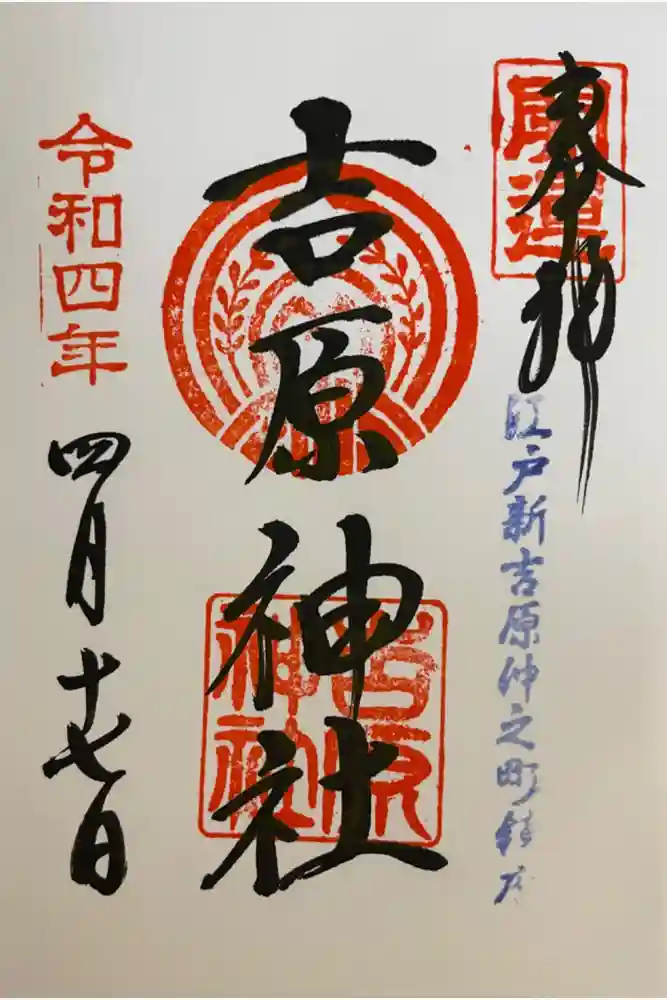 奉拝
開運
江戸新吉原仲之町鎮座
吉原神社
吉原神社
令和四年
四月十七日